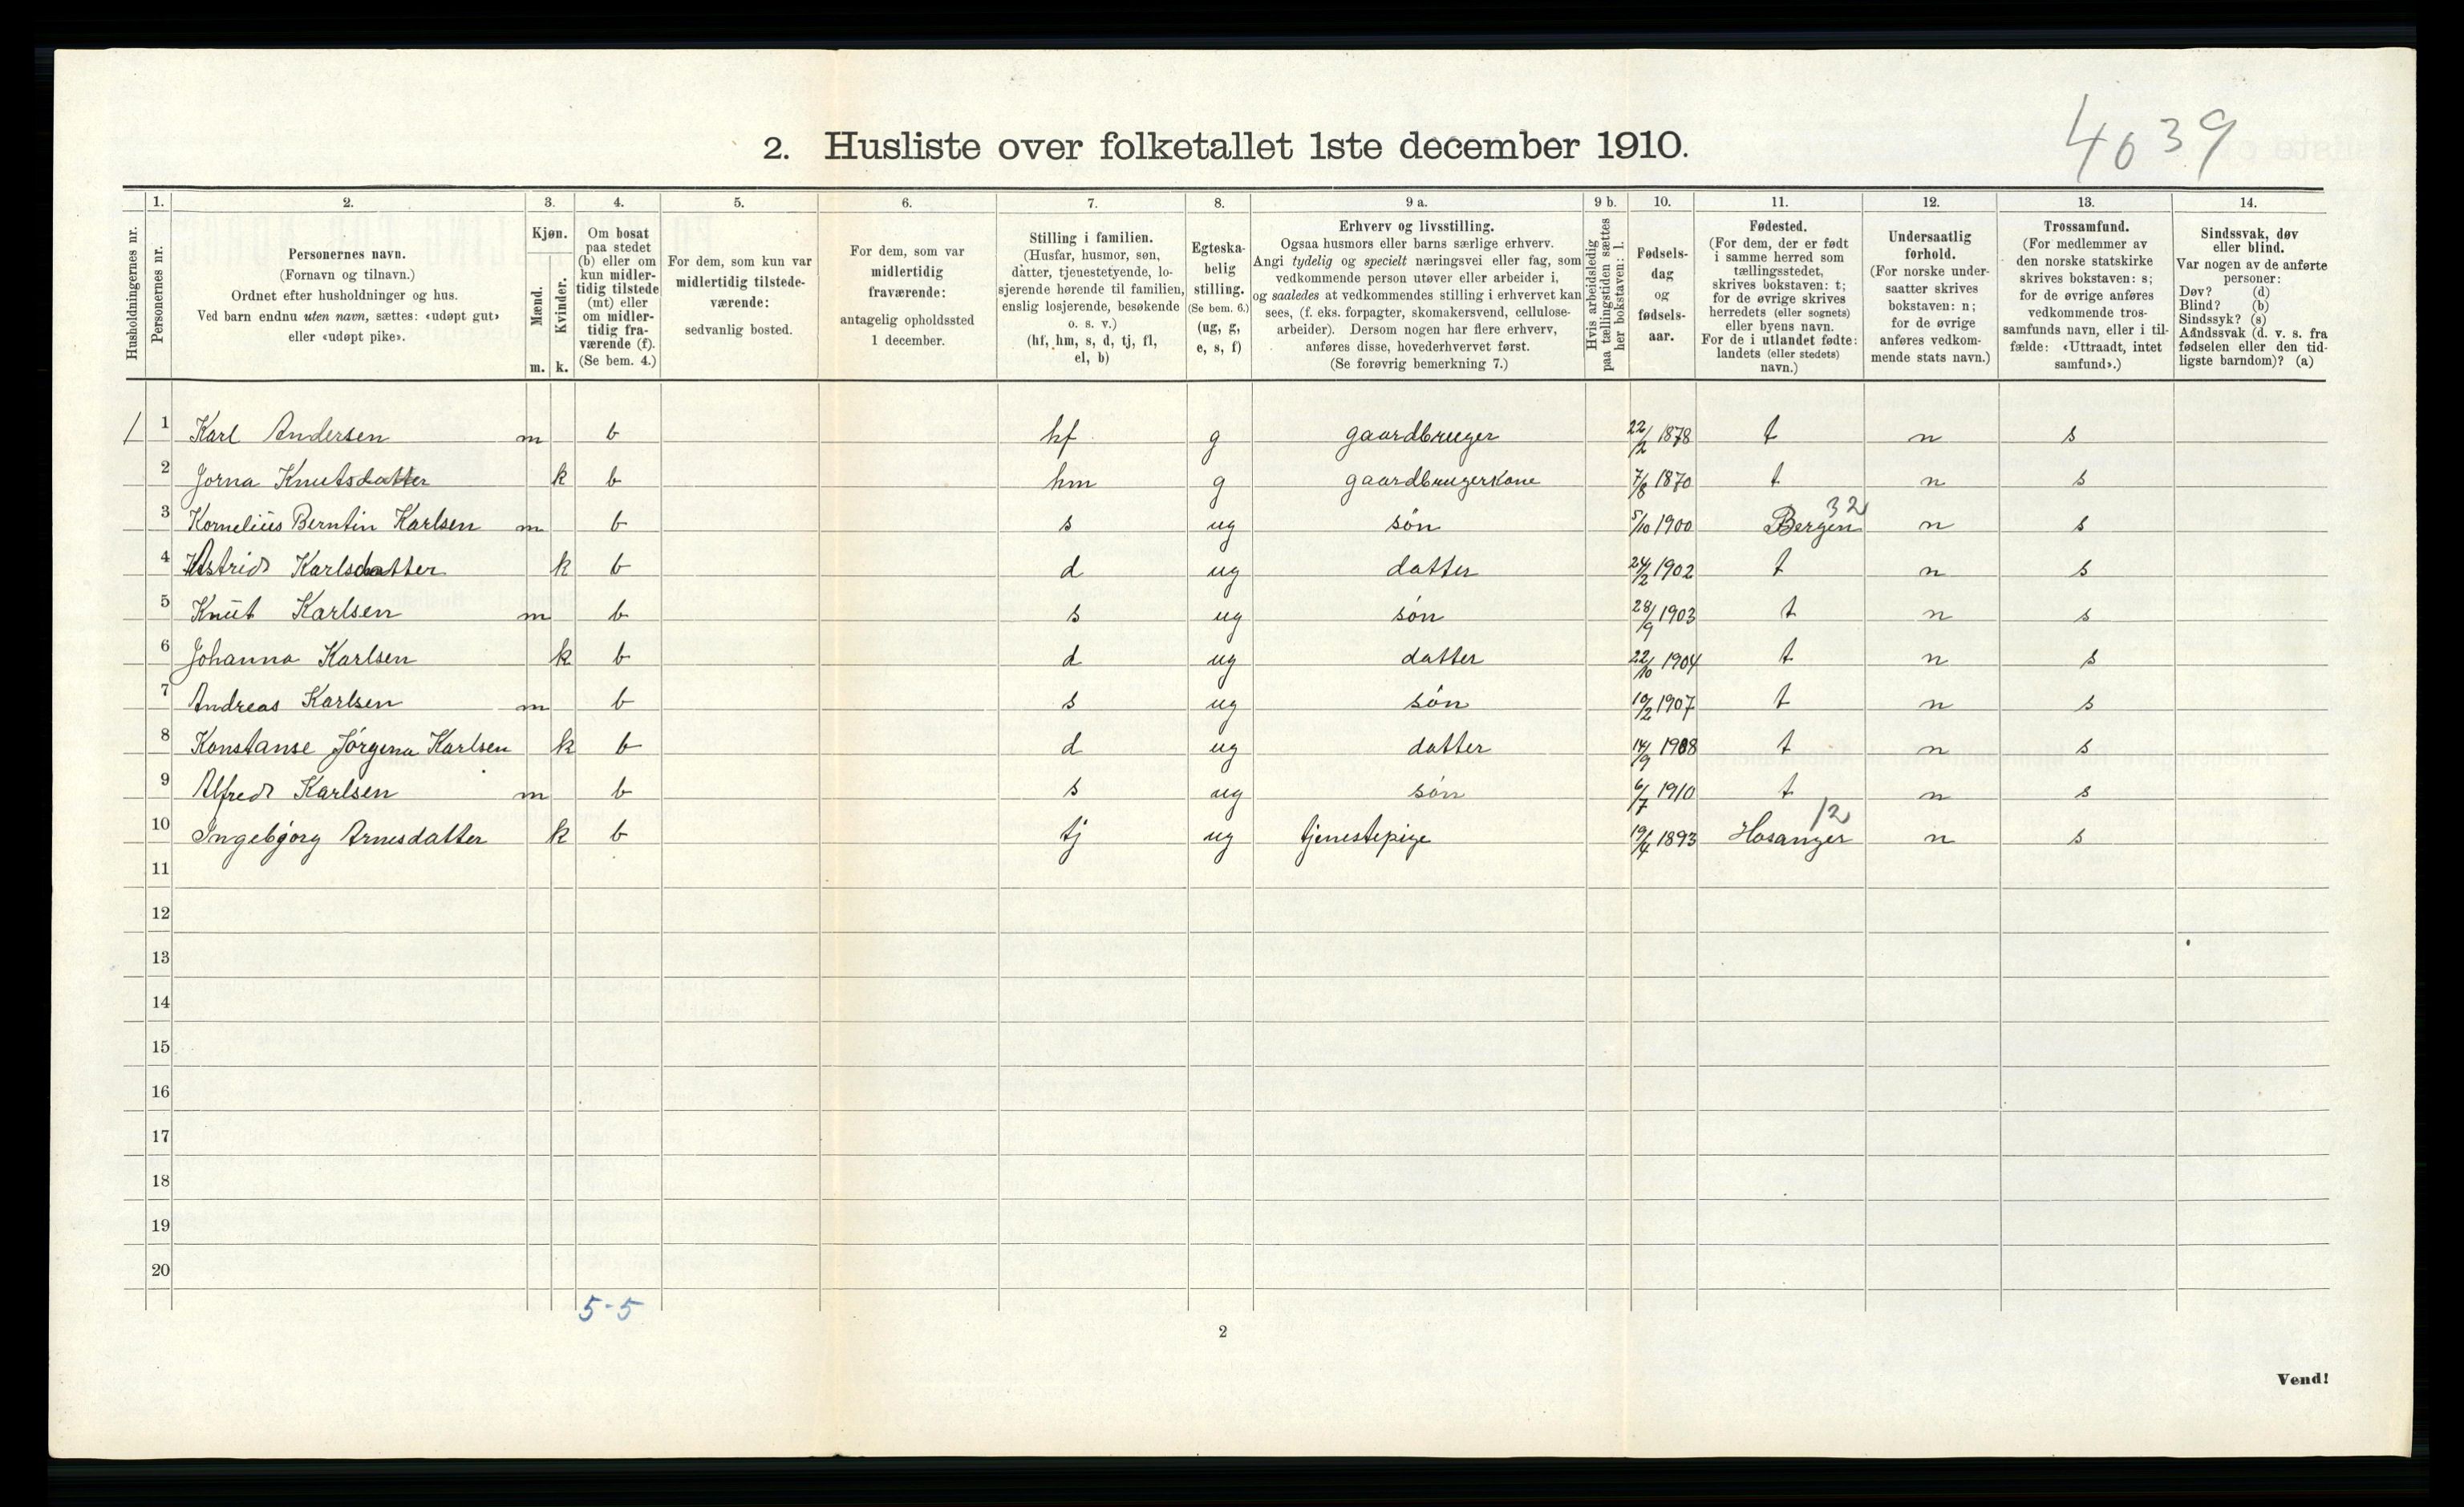 4039
2. Husliste over folketallet 1ste december 1910.
Husholdningernes nr.
1.
Personernes nr.
2.
Personernes navn.
(Fornavn og tilnavn.)
Ordnet efter husholdninger og hus.
Ved barn endnu uten navn, sættes: «udøpt gut»
eller «udøpt pike».
3.
Kjøn.
Mænd.
Kvinder.
m. k.
4.
Om bosat
paa stedet
(b) eller om
kun midler-
tidig tilstede
(mt) eller
om midler-
tidig fra-
værende (f).
(Se bem. 4.)
5.
For dem, som kun var
midlertidig tilstede-
værende:
sedvanlig bosted.
6.
For dem, som var
midlertidig
fraværende:
antagelig opholdssted
1 december.
7.
Stilling i familien.
(Husfar, husmor, søn,
datter, tjenestetyende, lo-
sjerende hørende til familien,
enslig losjerende, besøkende
o. s. v.)
(hf, hm, s, d, tj, fl,
el, b)
8.
Egteska-
belig
stilling.
(Se bem. 6.)
(ug, g,
e, s, f)
9 a.
Erhverv og livsstilling.
Ogsaa husmors eller barns særlige erhverv.
Angi tydelig og specielt næringsvei eller fag, som
vedkommende person utøver eller arbeider i,
og saaledes at vedkommendes stilling i erhvervet kan
sees, (f. eks. forpagter, skomakersvend, cellulose-
arbeider). Dersom nogen har flere erhverv,
anføres disse, hovederhvervet først.
(Se forøvrig bemerkning 7.)
9 b.
Hvis arbeidsledig
paa tællingstiden sættes
her bokstaven: l.
10.
Fødsels-
dag
og
fødsels-
aar.
11.
Fødested.
(For dem, der er født
i samme herred som
tællingsstedet,
skrives bokstaven: t;
for de øvrige skrives
herredets (eller sognets)
eller byens navn.
For de i utlandet fødte:
landets (eller stedets)
navn.)
12.
Undersaatlig
forhold.
(For norske under-
saatter skrives
bokstaven: n;
for de øvrige
anføres vedkom-
mende stats navn.)
13.
Trossamfund.
(For medlemmer av
den norske statskirke
skrives bokstaven: s;
for de øvrige anføres
vedkommende tros-
samfunds navn, eller i til-
fælde: «Uttraadt, intet
samfund».)
14.
Sindssvak, døv
eller blind.
Var nogen av de anførte
personer:
Døv? (d)
Blind? (b)
Sindssyk? (s)
Aandssvak (d. v. s. fra
fødselen eller den tid-
ligste barndom)? (a)
1 1 Karl Andersen m b hf g gaardbruger 22/2 1878 t n s
2 Jorna Knutsdatter k b hm g gaardbrugerkone 7/8 1870 t n s
32
3 Kornelius Berntin Karlsen m b s ug søn 5/10 1900 Bergen n s
4 Astrid Karlsdatter k b d ug datter 24/2 1902 t n s
5 Knut Karlsen m b s ug søn 28/9 1903 t n s
6 Johanna Karlsen k b d ug datter 22/10 1904 t n s
7 Andreas Karlsen m b s ug søn 10/2 1907 t n s
8 Konstanse Jørgena Karlsen k b d ug datter 14/9 1908 t n s
9 Alfred Karlsen m b s ug søn 6/7 1910 t n s
12
10 Ingebjørg Arnesdatter k b tj ug tjenestepige 19/4 1893 Hosanger n s
11
12
13
14
15
16
17
18
19
20
5-5
2
Vend!